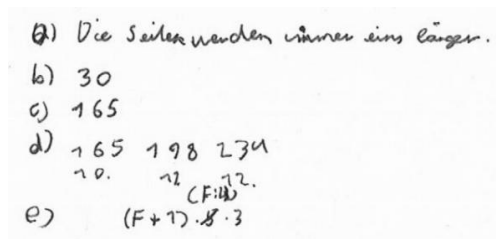 a) Die Seiten werden immer eins länger.
b) 30
c) 165
d) 165 198 234
10. 12 12.
(F:4)
e) (F+1)· ·3